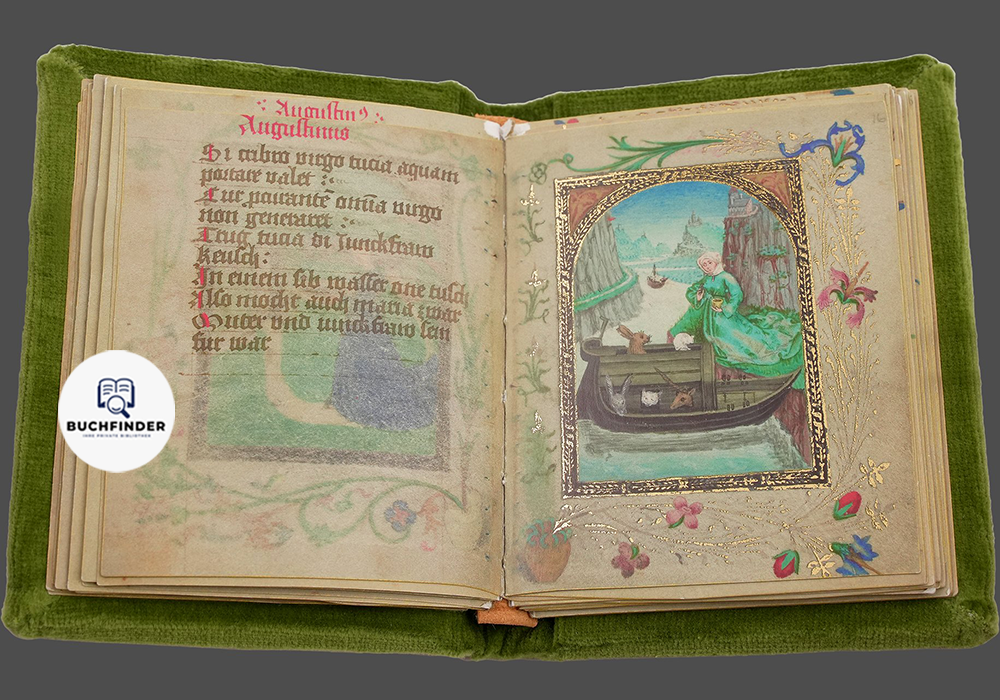 Augustin9
Augustinus
Si cribro virgo tucia aquam
portare valet :
Cur omnia virgo
non generaret :
Trug tucia di junckfraw
keusch:
In einem sib wasser one tusch
Also mocht auch maria zwar
Muter vnd iunckfraw sein
fur war
BUCHFINDER
IHRE PRIVATE BIBLIOTHEK
16